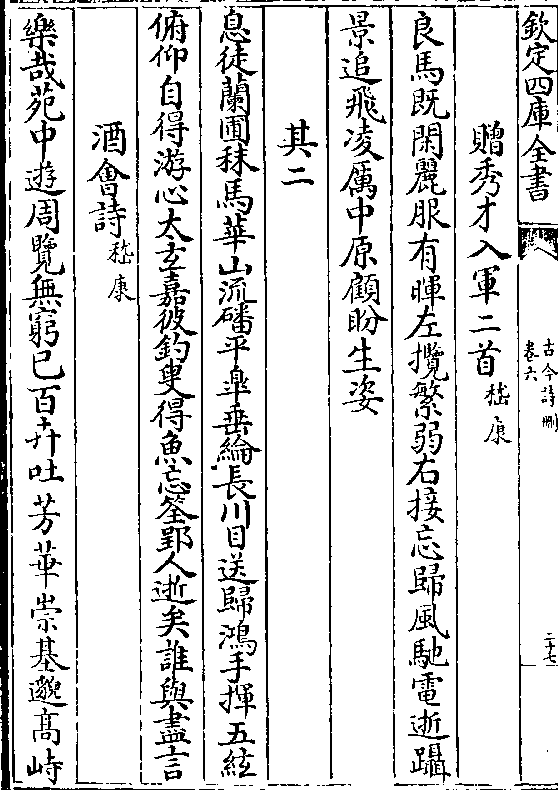 欽定四庫全書
古今詩刪
卷六
二十七
贈秀才入軍二首嵇康
良馬既閑麗服有暉左攬繁弱右接忘歸風馳電逝躡
景追飛凌厲中原顧盼生姿
其二
息徒蘭圃秣馬華山流磻平皐垂綸長川目送歸鴻手揮五絃
俯仰自得游心太玄嘉彼釣叟得魚忘筌郢人逝矣誰與盡言
酒會詩嵇康
樂哉苑中遊周覽無窮已百卉吐芳華崇基邈髙峙